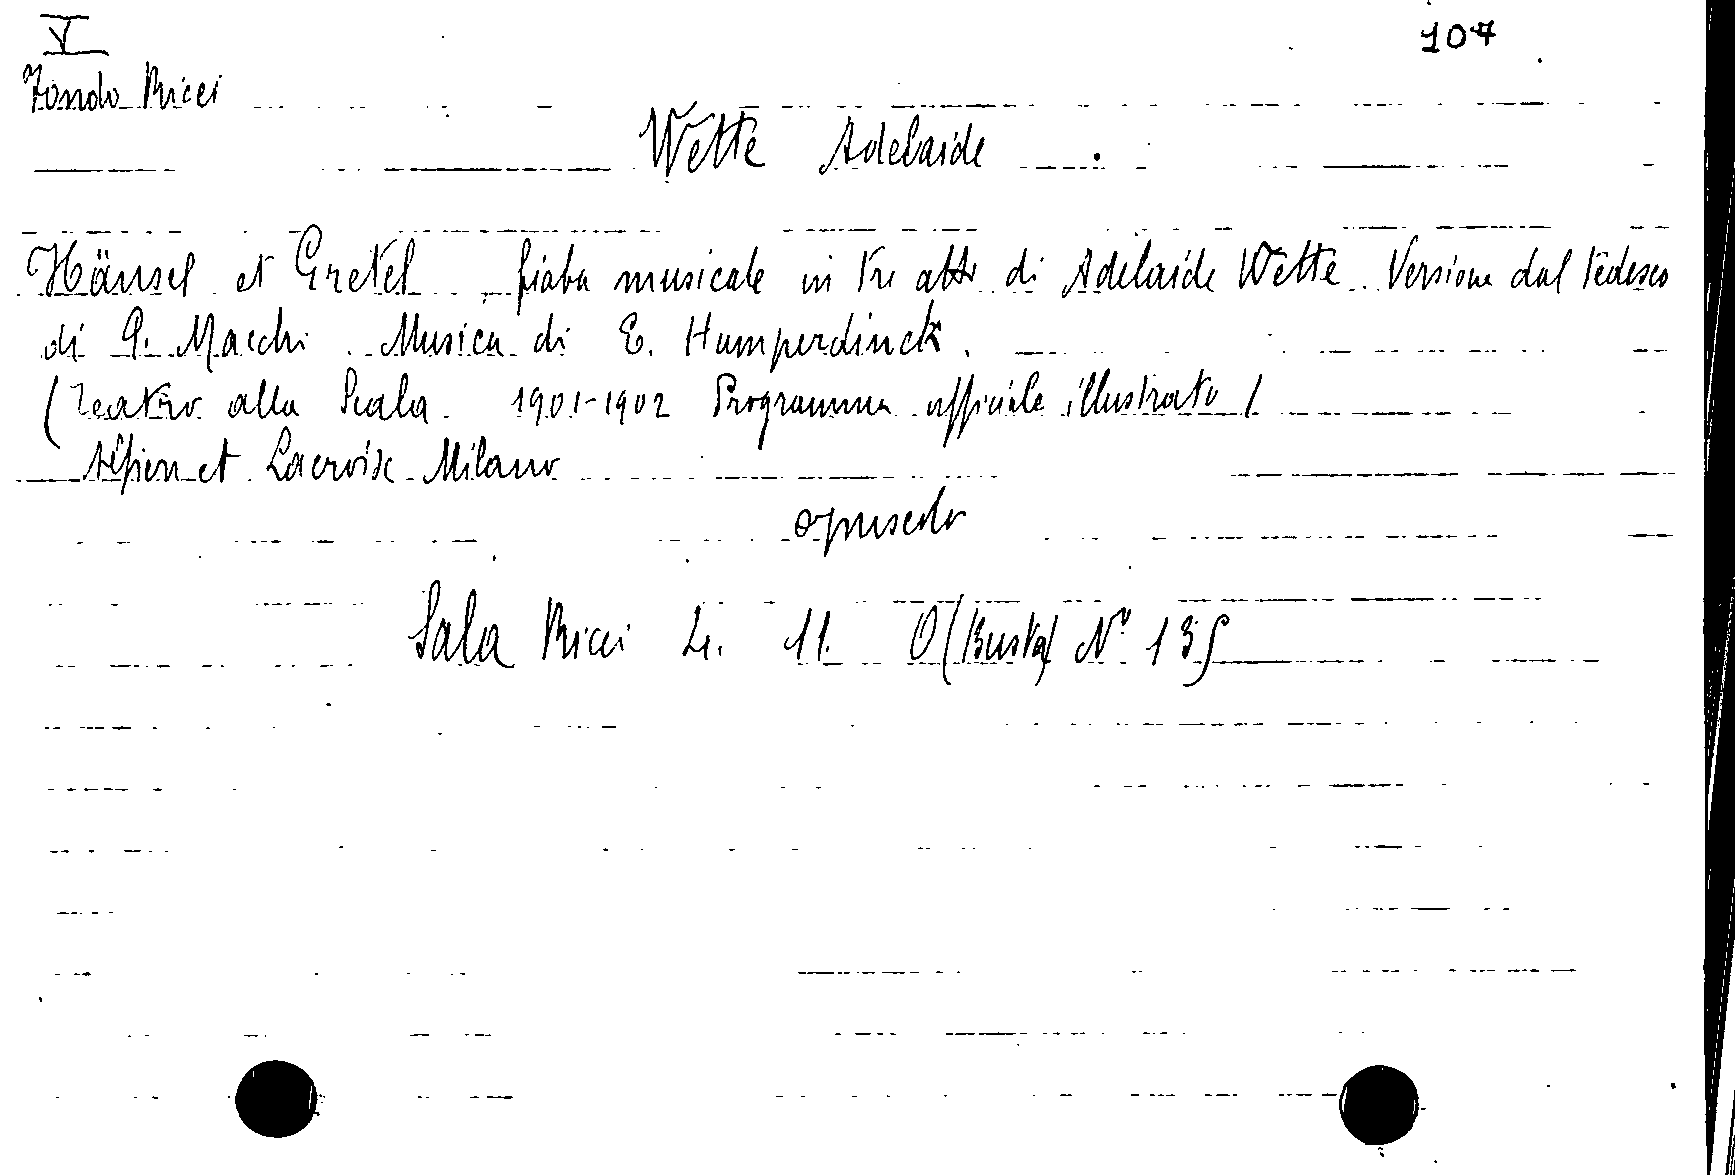 V
107
Fondo Ricci
Wette Adelaide
Hänsel et Gretel fiaba musicale in tre atti di Adelaide Wette. Versione dal tedesco
di G. Macchi. Musica di E. Humperdinck.
(Teatro alla Scala. 1901-1902 Programma officiale illustrato)
Alfieri et Lacroix Milano
opuscolo
Sala Ricci 4. 11. O (Busta) N° 135